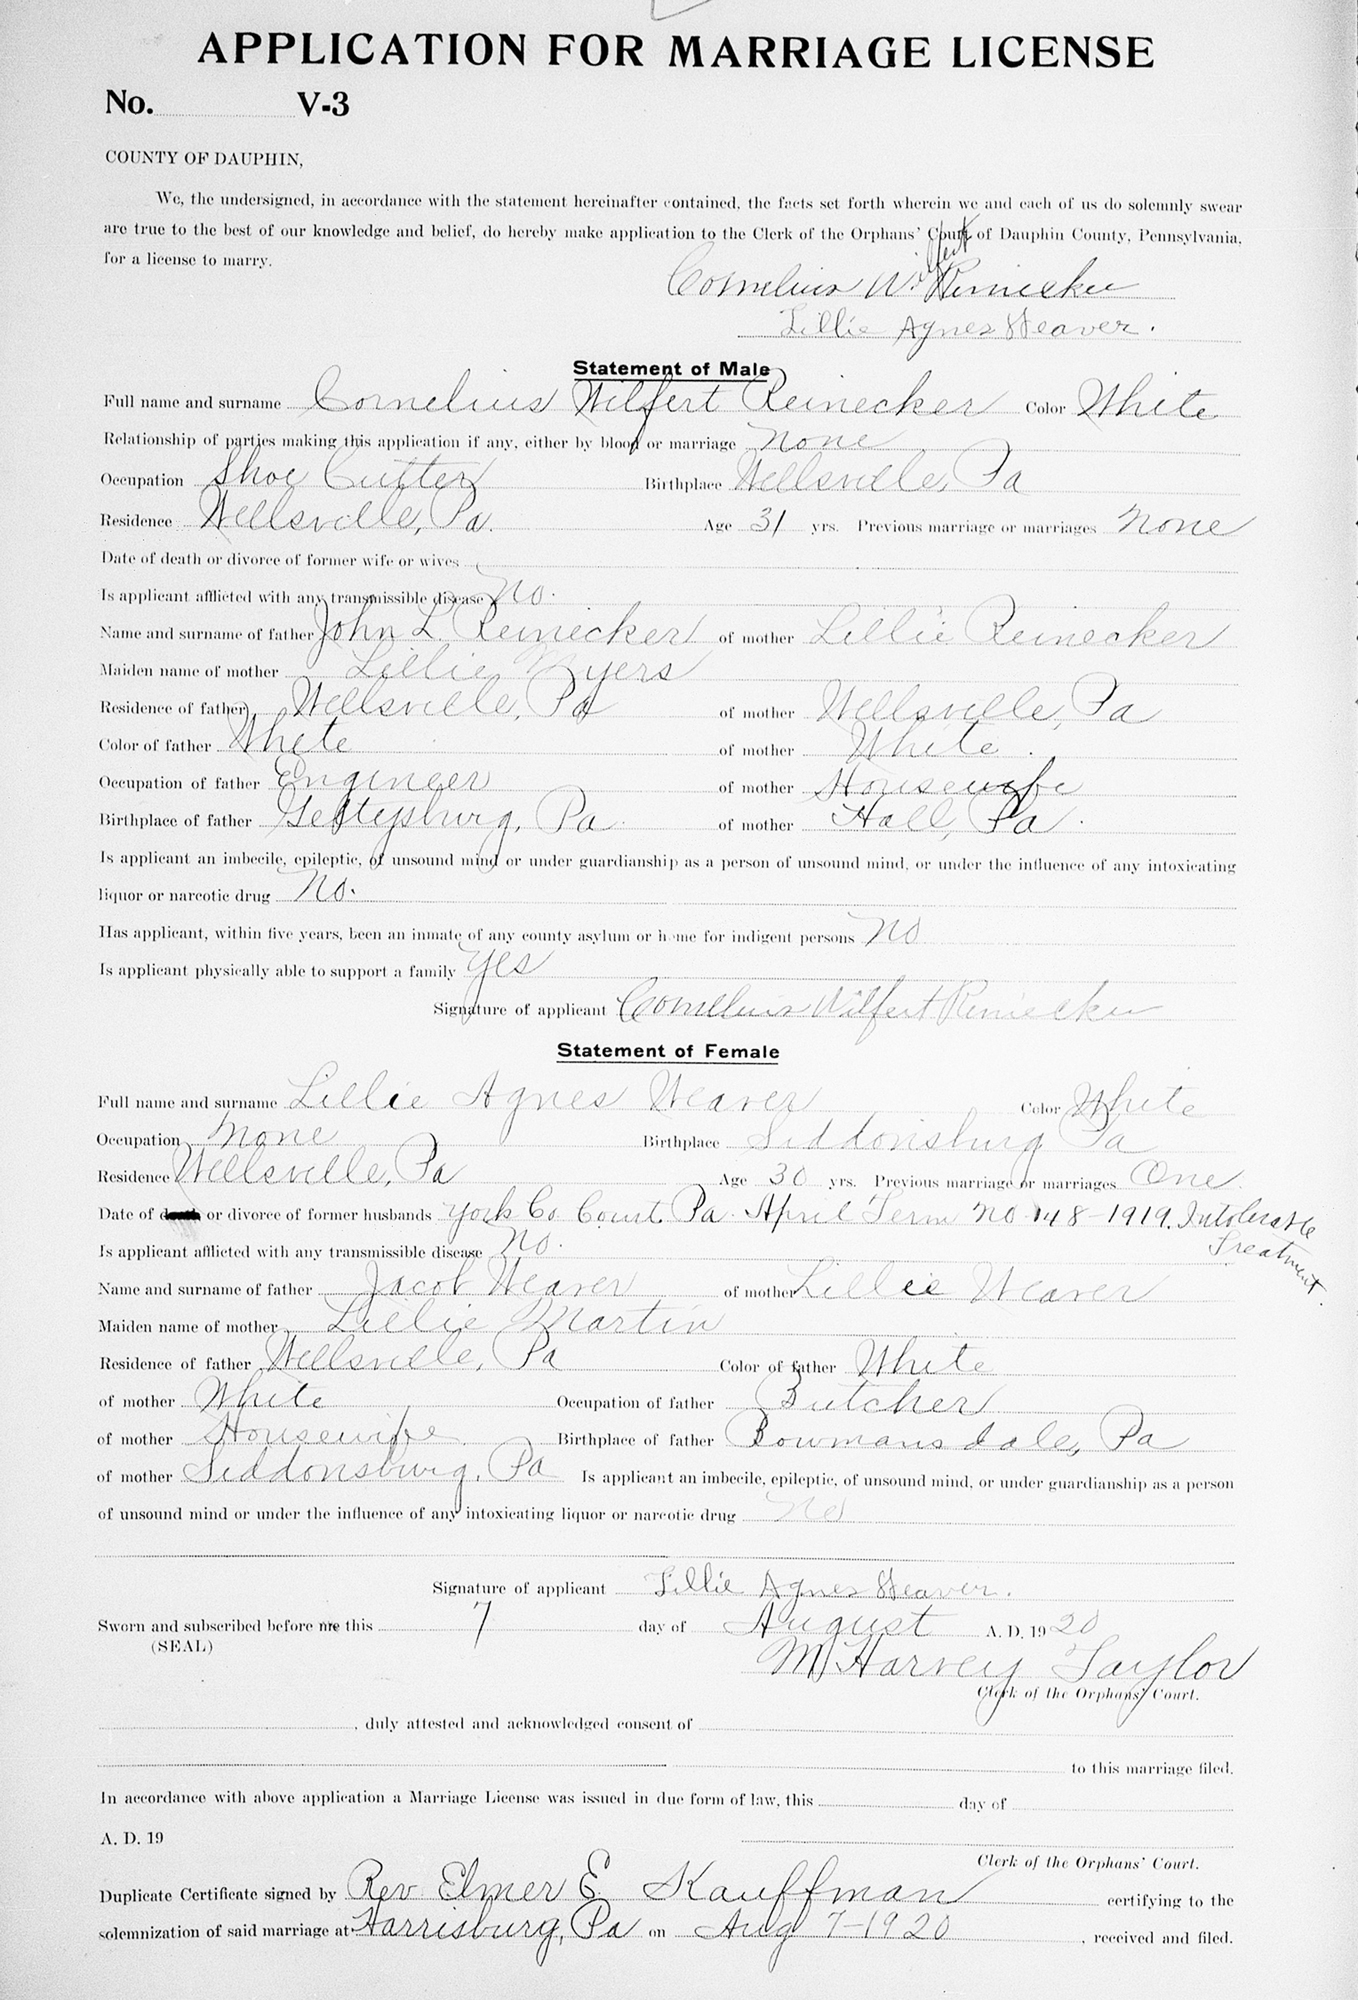 APPLICATION FOR MARRIAGE LICENSE
No. V-3
COUNTY OF DAUPHIN,
We, the undersigned, in accordance with the statement hereinafter contained, the facts set forth wherein we and each of us do solemnly swear
are true to the best of our knowledge and belief, do hereby make application to the Clerk of the Orphans' Court of Dauphin County, Pennsylvania,
for a license to marry.
Cornelius Wilfert Reinecker
Lillie Agnes Weaver.
Statement of Male
Full name and surname Cornelius Wilfert Reinecker Color White
Relationship of parties making this application if any, either by blood or marriage None
Occupation Shoe Cutter Birthplace Wellsville, Pa
Residence Wellsville, Pa. Age 31 yrs. Previous marriage or marriages None
Date of death or divorce of former wife or wives
Is applicant afflicted with any transmissible disease No.
Name and surname of father John L. Reinecker of mother Lillie Reinecker
Maiden name of mother Lillie Myers
Residence of father Wellsville, Pa of mother Wellsville, Pa
Color of father White of mother White.
Occupation of father Engineer of mother Housewife
Birthplace of father Gettysburg, Pa. of mother Hall, Pa.
Is applicant an imbecile, epileptic, of unsound mind or under guardianship as a person of unsound mind, or under the influence of any intoxicating
liquor or narcotic drug No.
Has applicant, within five years, been an inmate of any county asylum or home for indigent persons No
Is applicant physically able to support a family Yes
Signature of applicant Cornelius Wilfert Reinecker
Statement of Female
Full name and surname Lillie Agnes Weaver Color White
Occupation None Birthplace Siddonsburg Pa
Residence Wellsville, Pa Age 30 yrs. Previous marriage or marriages One.
Date of death or divorce of former husbands York Co Court Pa. April Term No 148-1919. Intolerable
Treatment.
Is applicant afflicted with any transmissible disease No.
Name and surname of father Jacob Weaver of mother Lillie Weaver
Maiden name of mother Lillie Martin
Residence of father Wellsville, Pa Color of father White
of mother White Occupation of father Butcher
of mother Housewife Birthplace of father Bowmansdale, Pa
of mother Siddonsburg, Pa Is applicant an imbecile, epileptic, of unsound mind, or under guardianship as a person
of unsound mind or under the influence of any intoxicating liquor or narcotic drug No
Signature of applicant Lillie Agnes Weaver.
Sworn and subscribed before me this 7 day of August A. D. 1920
(SEAL) M Harvey Taylor
Clerk of the Orphans' Court.
, duly attested and acknowledged consent of
to this marriage filed.
In accordance with above application a Marriage License was issued in due form of law, this day of
A. D. 19
Clerk of the Orphans' Court.
Duplicate Certificate signed by Rev Elmer E Kauffman certifying to the
solemnization of said marriage at Harrisburg, Pa on Aug 7-1920, received and filed.